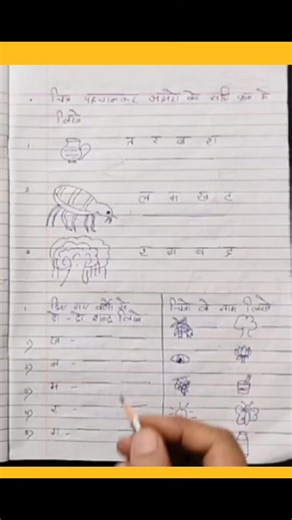 चित्र पहचानकर अक्षरों के सही क्रम में
लिखें
1 त र ब
2 ल म ख ट
3 ग
दिए गए वर्णों से
दो - दो शब्द लिखो
चित्रों के नाम लिखो
1) ज -
2) न -
3) म -
4) र -
5) ग -